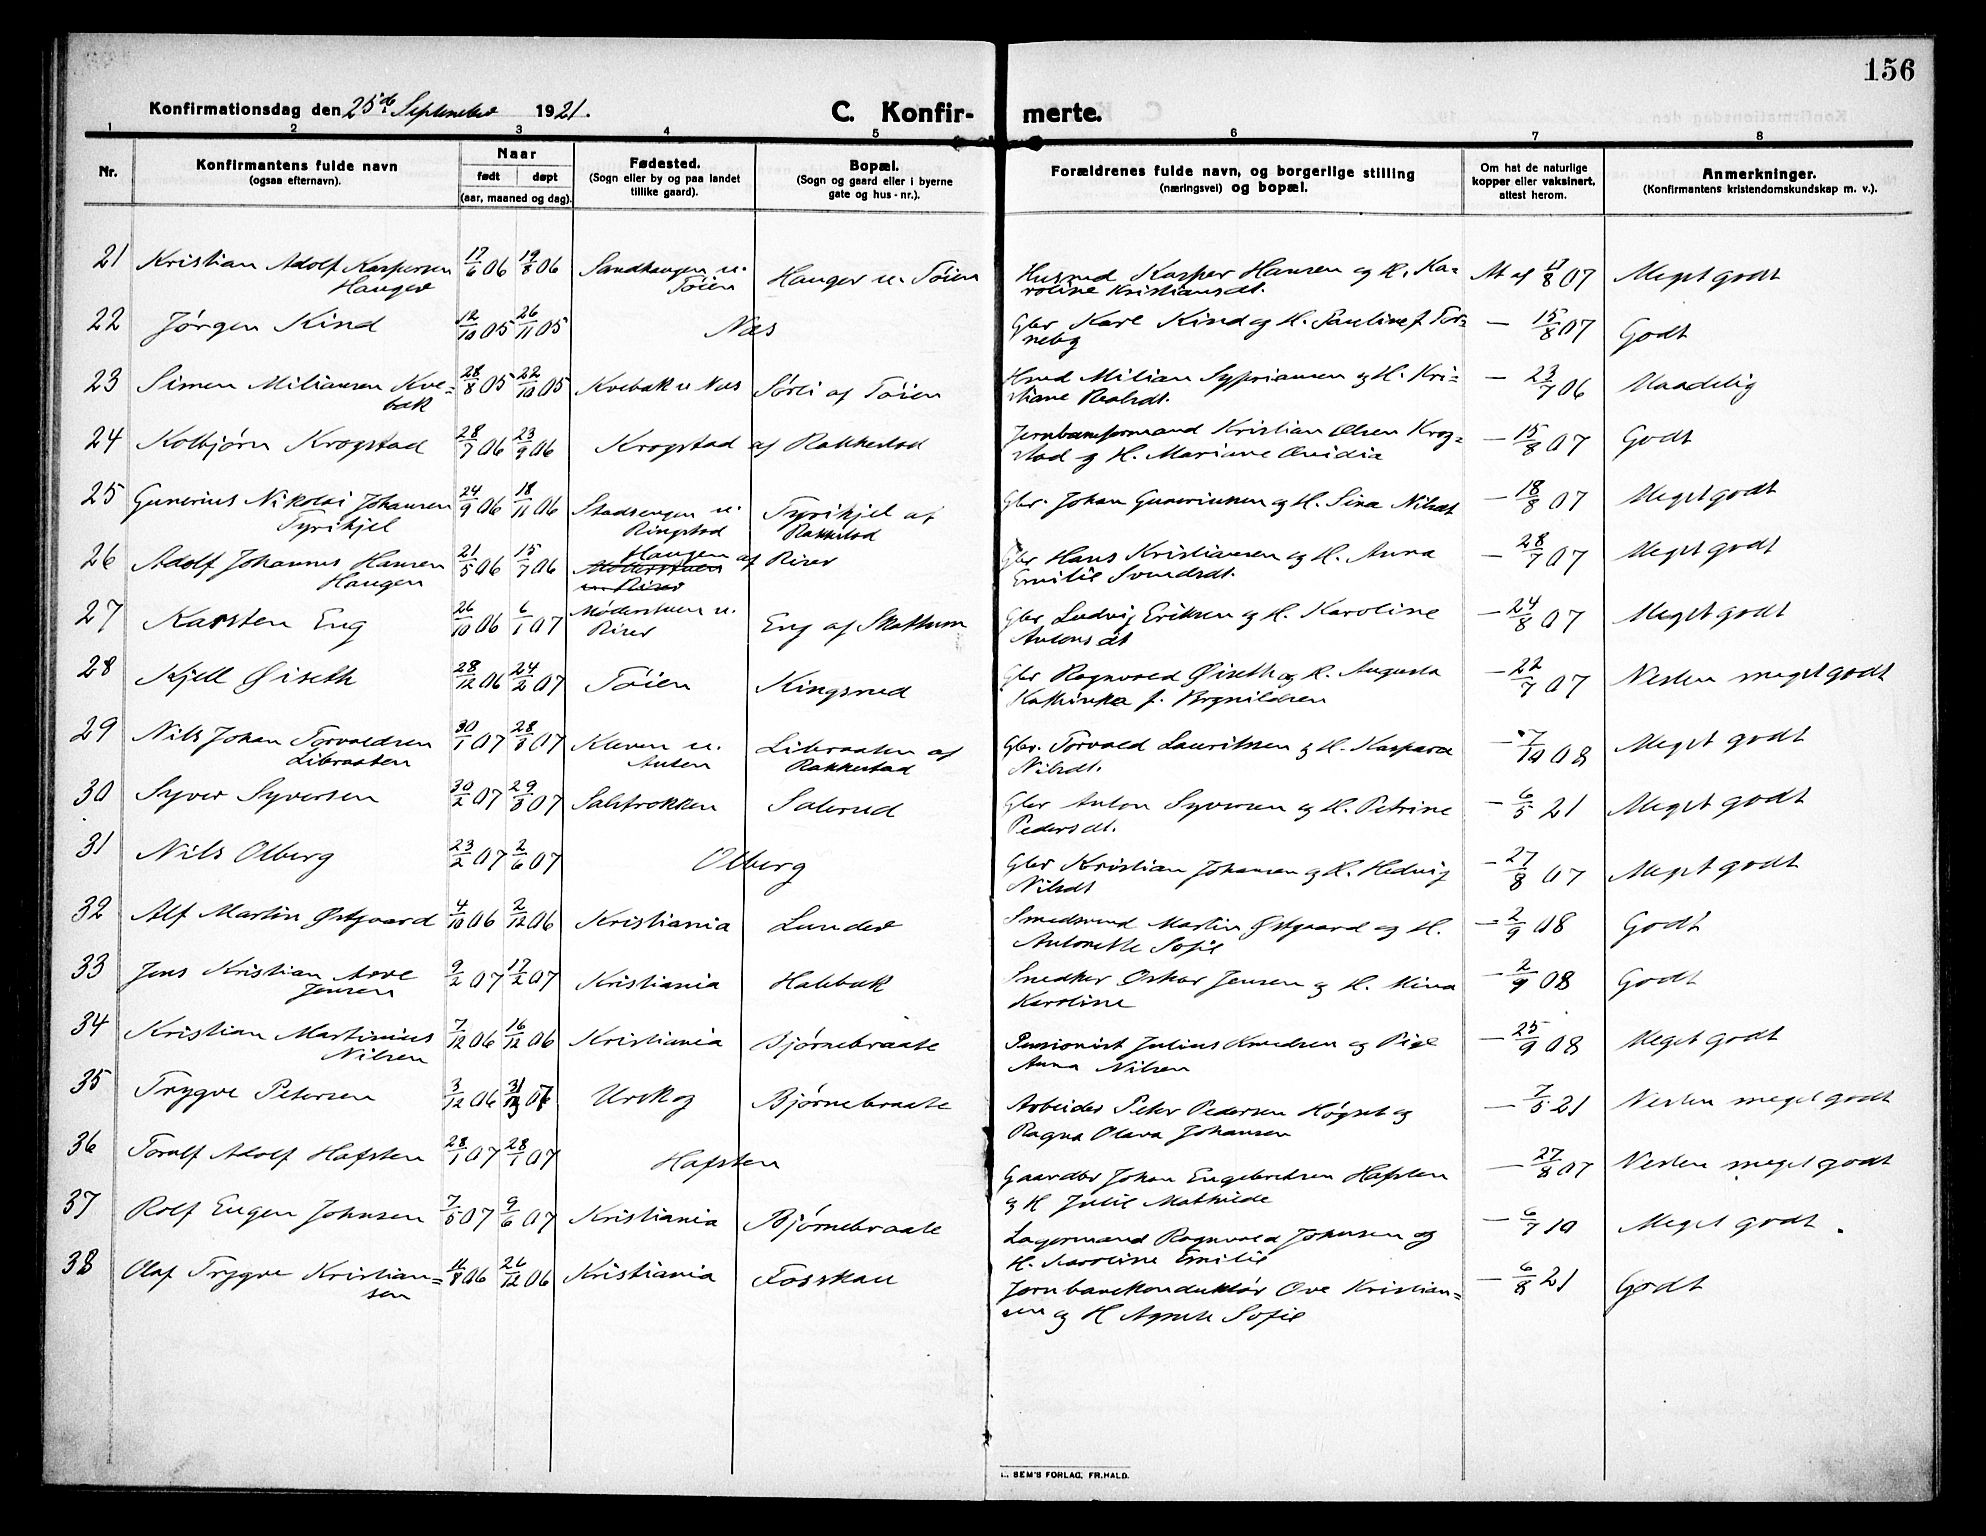 156
Konfirmationsdag den 25de September 1921.
C. Konfir- merte.
1 2 3 4 5 6 7 8
Nr.
Konfirmantens fulde navn
(ogsaa efternavn).
Naar
født døpt
(aar, maaned og dag).
Fødested.
(Sogn eller by og paa landet
tillike gaard).
Bopæl.
(Sogn og gaard eller i byerne
gate og hus-nr.).
Forældrenes fulde navn, og borgerlige stilling
(næringsvei) og bopæl.
Om hat de naturlige
kopper eller vaksinert,
attest herom.
Anmerkninger.
(Konfirmantens kristendomskundskap m. v.).
21 Kristian Adolf Kaspersen 17/6 06 19/8 06 Sandhaugen u. Hauger u. Tøien Husmd Kasper Hansen og H. Ka= At af 17/8 07 Meget godt
Hauger Tøien roline Kristiansdt.
22 Jørgen Kind 12/10 05 26/11 05 Næs Gbr Karl Kind og H. Pauline f. Tor= — 15/8 07 Godt
neby
23 Simen Miliansen Kve= 28/8 05 22/10 05 Kvebak u Næs Sørli af Tøien Hmd Milian Sypriansen og H. Kri= — 23/7 06 Maadelig
bak stiane
24 Kolbjørn Krogstad 28/7 06 23/9 06 Krogstad af Rakkestad Jernbaneformand Kristian Olsen Krog= — 15/8 07 Godt
stad og H. Mariane Ovidia
25 Gunerius Nikolai Johansen 24/9 06 18/11 06 Stadsengen u. Tyrihjel af Gbr. Johan Gunerinssen og H. Sina Nilsdt — 18/8 07 Meget godt
Tyrihjel Ringstad Rakkestad
26 Adolf Johannes Hansen 21/5 06 15/7 06 Haugen af Rirer Gbr Hans Kristiansen og H. Anna — 28/7 07 Meget godt
Haugen Møderstuen u. Rirer Emilie Svendsdt.
27 Karsten Eng 26/10 06 6/1 07 Møderstuen u. Eng af Skattum Gbr Ludvig Eriksen og H. Karoline — 24/8 07 Meget godt
Rirer Antonsdt
28 Kjell Øiseth 28/12 06 24/2 07 Tøien Kingsrud Gbr Ragnvald Øiseth og H. Augusta — 22/7 07 Nesten meget godt
Kathinka f. Brynildsen
29 Nils Johan Torvaldsen 30/1 07 28/3 07 Kleven u. Libraaten af Gbr. Torvald Lauritsen og H. Kaspara — 7/10 08 Meget godt
Libraaten Auten Rakkestad Nilsdt.
30 Syver Syversen 30/2 07 29/3 07 Salerud Gbr Anton Syversen og H. Petrine — 6/5 21 Meget godt
Pedersdt.
31 Nils Olberg 23/2 07 2/6 07 Olberg Gbr Kristian Johansen og H. Hedvig — 27/8 07 Meget godt
Nilsdt
32 Alf Martin Østgaard 4/10 06 2/12 06 Kristiania Lunder Smedsvend Martin Østgaard og H. — 2/9 08 Godt
Antonette Sofie
33 Jens Kristian Aove 9/2 07 17/2 07 Kristiania Halebak Snedker Oskar Jensen og H. Mina — 2/9 08 Godt
Jensen Karoline
34 Kristian Martinius 7/12 06 16/12 06 Kristiania Bjørnebraate Pensionist Julius Knudsen og Pige — 25/9 08 Meget godt
Nilsen Anna Nilsen
35 Trygve Petersen 3/12 06 31/3 07 Urskog Bjørnebraate Arbeider Peter Pedersen Høgset og — 7/5 21 Nesten meget godt
Ragna Olava Johansen
36 Toralf Adolf Hafsten 28/1 07 28/1 07 Hafsten Gaardbr Johan Engebretsen Hafsten — 27/8 07 Nesten meget godt
og H Julie Mathilde
37 Rolf Eugen Johnsen 7/5 07 9/6 07 Kristiania Bjørnebraate Lagermand Ragnvald Johnsen og — 6/7 10 Meget godt.
H. Karoline Emilie
38 Olaf Trygve Kristian= 11/8 06 26/12 06 Kristiania Fosskau Jernbanekonduktør Ove Kristian= — 6/8 21 Godt
sen sen og H Agnete Sofie
SEM'S FORLAG, FR.HALD.